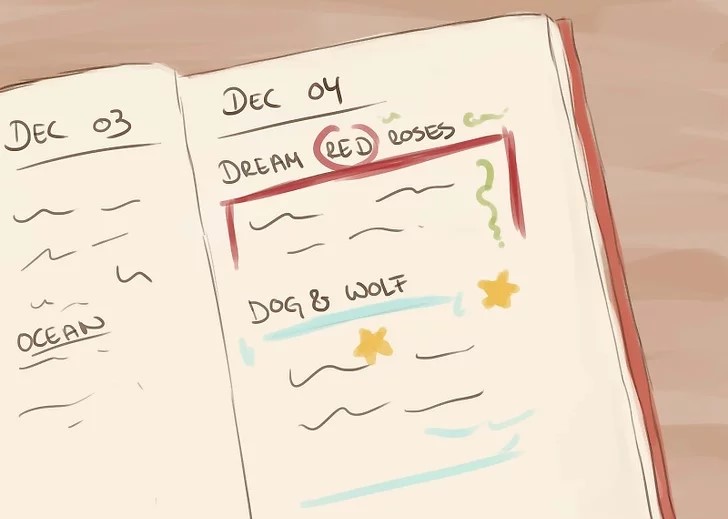 DEC 03
OCEAN
DEC 04
DREAM RED ROSES
DOG & WOLF